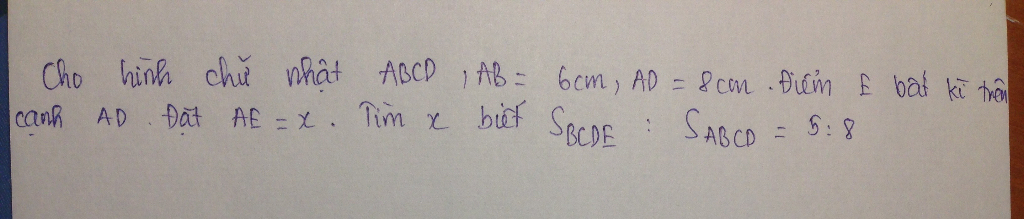 Cho hình chữ nhật ABCD, AB = 6cm, AD = 8cm. Điểm E bất kì trên
cạnh AD. Đặt AE = x. Tìm x biết S_BCDE : S_ABCD = 5:8